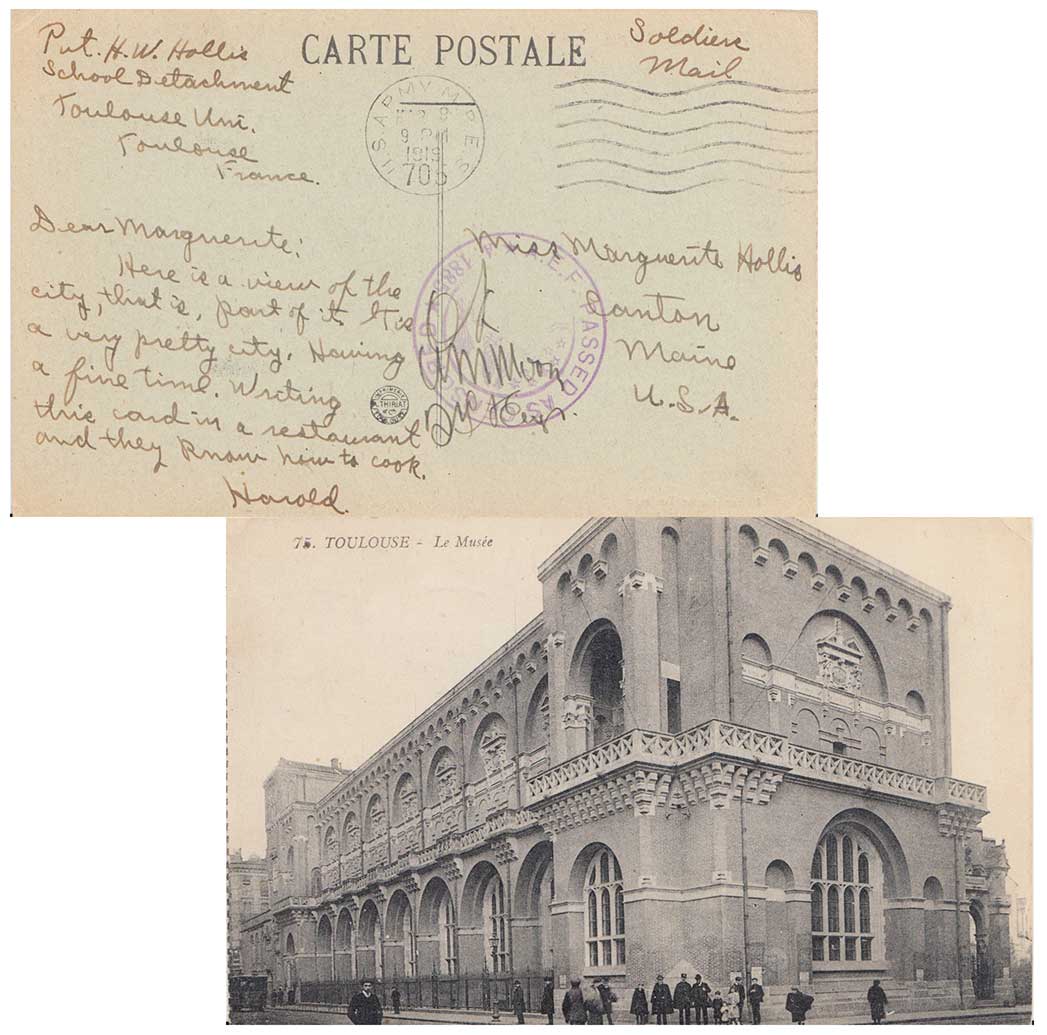 Pvt. H. W. Hollis
School Detachment
Toulouse Uni.
Toulouse
France.
CARTE POSTALE
Soldiers
Mail
U.S. ARMY M.P.E.S.
9 PM
1919
705
Dear Marguerite:
Here is a view of the
city, that is, part of it. It is
a very pretty city. Having
a fine time. Writing
this card in a restaurant
and they know how to cook.
Harold.
Miss Marguerite Hollis
Canton
Maine
U.S.A.
A.E.F. PASSED AS CENSORED
THIRIAT
75. TOULOUSE - Le Musée